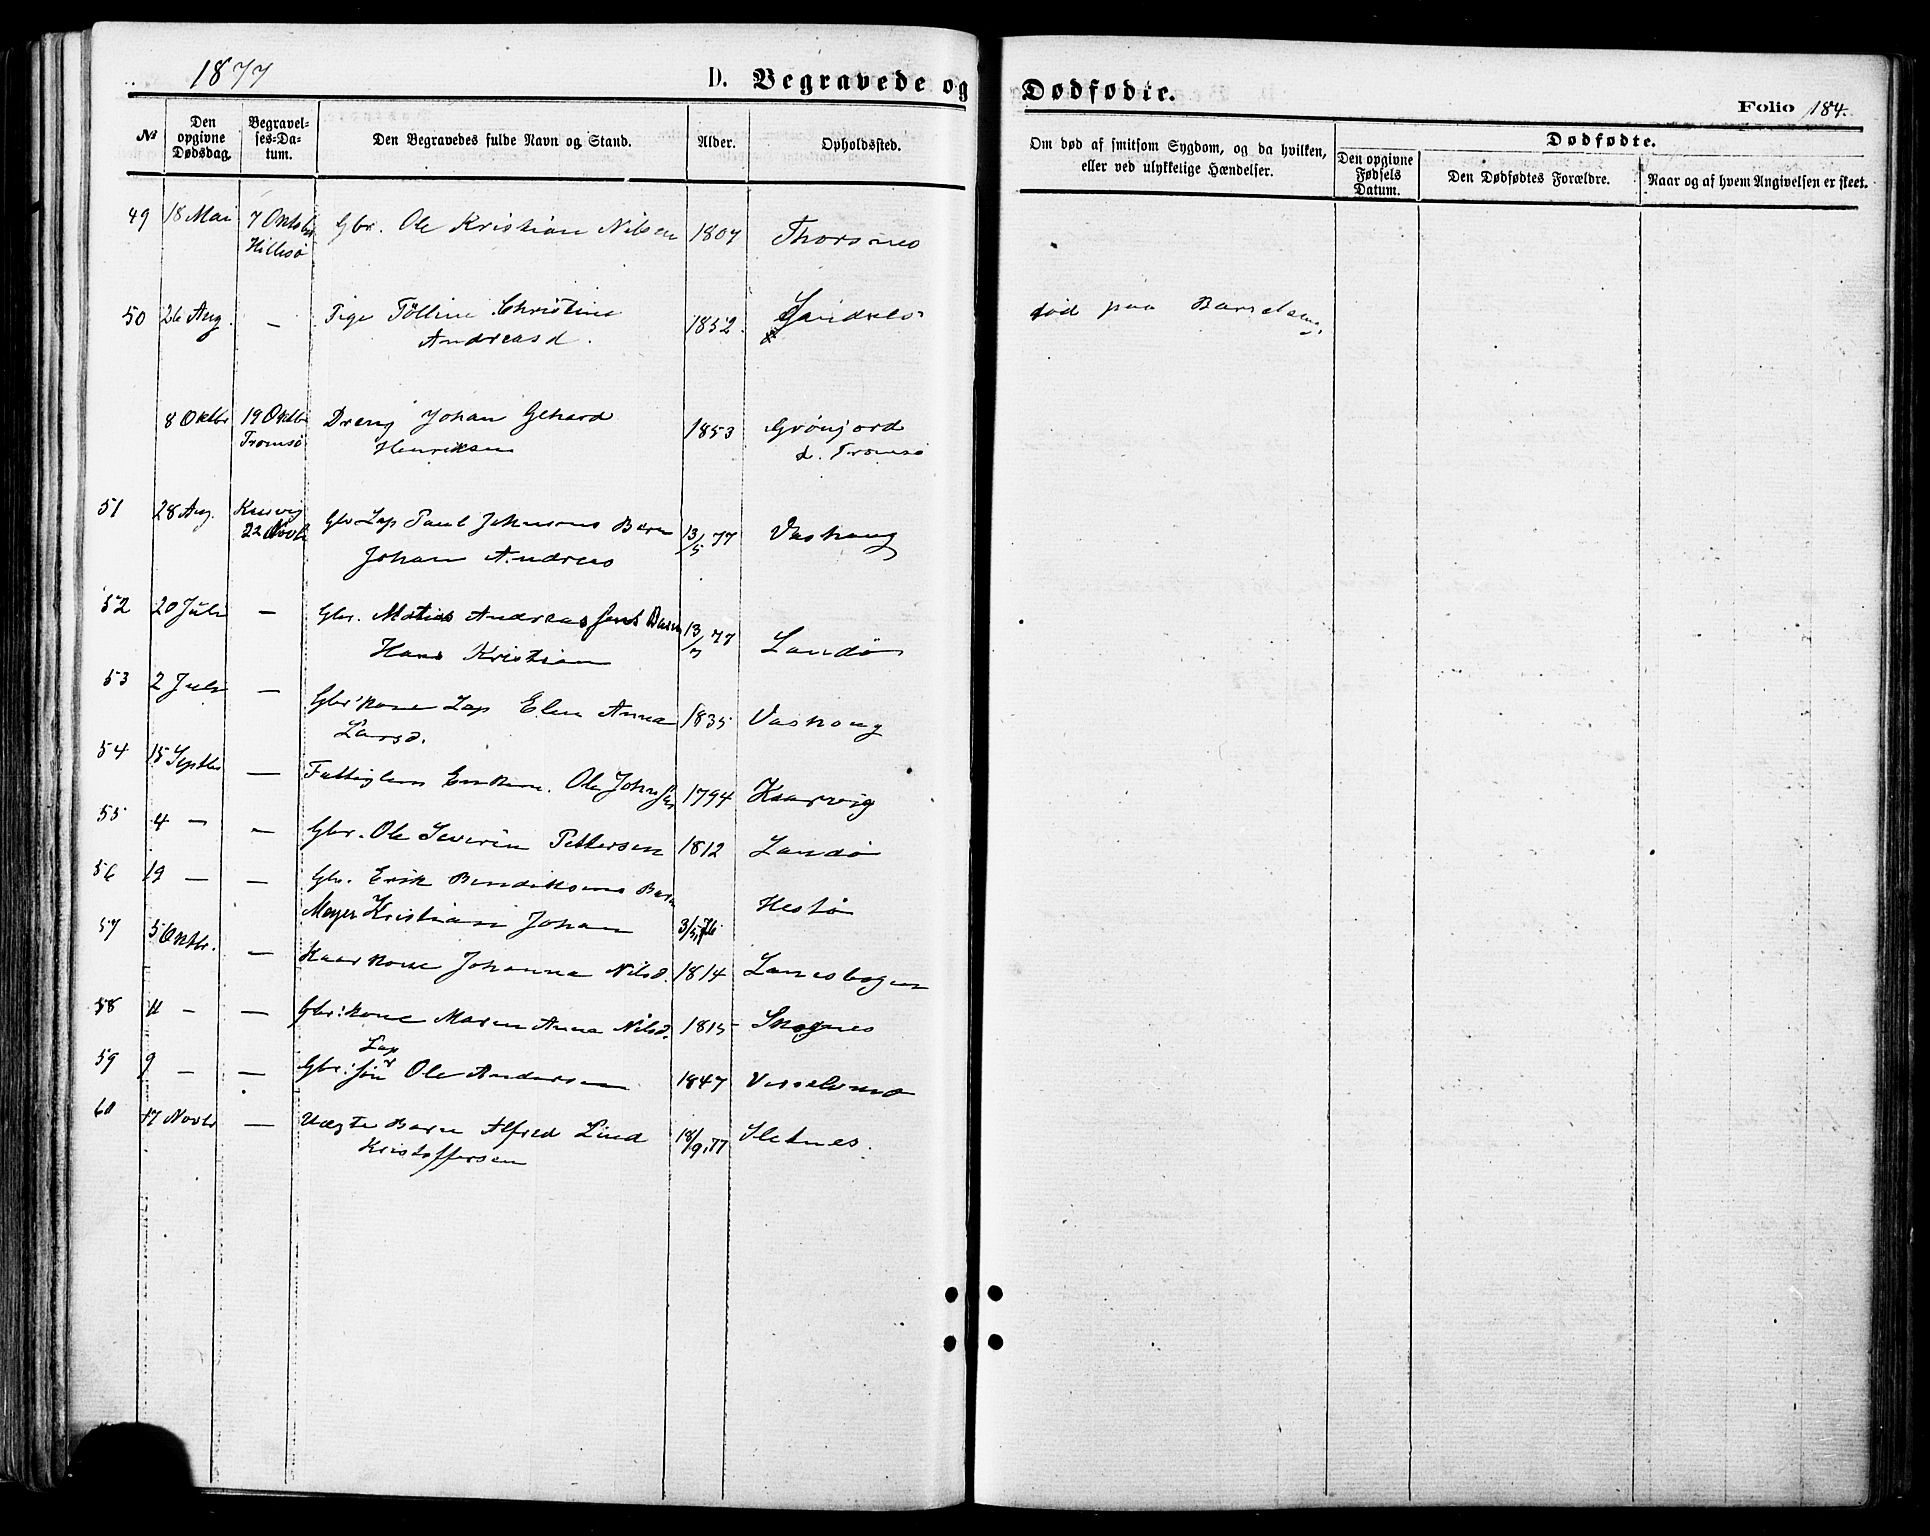 1877 D. Begravede og Dødfødte.
Folio 184.
№ Den opgivne Dødsdag. Begravelses-Datum. Den Begravedes fulde Navn og Stand. Alder. Opholdssted. Om død af smitsom Sygdom, og da hvilken, eller ved ulykkelige Hændelser. Dødfødte. Den opgivne Fødsels Datum. Den Dødfødtes Forældre. Naar og af hvem Angivelsen er skeet.
49 18 Mai 7 Oktobr Gbr. Ole Kristian Nilsen 1807 Thorsnes
Hillesø
50 26 Aug. — Pige Christine 1852. død paa Barselseng.
Andreasd.
8 Oktbr 19 Oktbr Dreng Johan Gehard 1853 Grønjord
Tromsø Henriksen d. Tromsø
51 28 Aug. Gbr Lap Paul Johnsens Barn 13/5 77
22 Novb Johan Andreas
52 20 Juli — Gbr. Matias Andreassens Barn 13/7 77 Sandø
Hans Kristian
53 2 Juli — Gbr'kone Lap Elen Anna 1835
Larsd.
54 15 Septbr — Fattiglem Enkem. Ole Johnsen 1794 Kaarvig
55 4 — — Gbr. Ole Severin Pettersen 1812 Sandø
56 19 — — Gbr. Erik Bendiksens Barn
Meyer Kristian Johan 3/5 76 Hestø
57 5 Oktbr. — kone Johanna Nilsd. 1814
58 11 — — Gbr:kone Maren Anna Nilsd. 1815 Skognes
Lap
59 9 — — Gbr:søn Ole Andersen 1847
60 17 Novbr — Uægte Barn Alfred Lind 18/9.77 Sletnes.
Kristoffersen